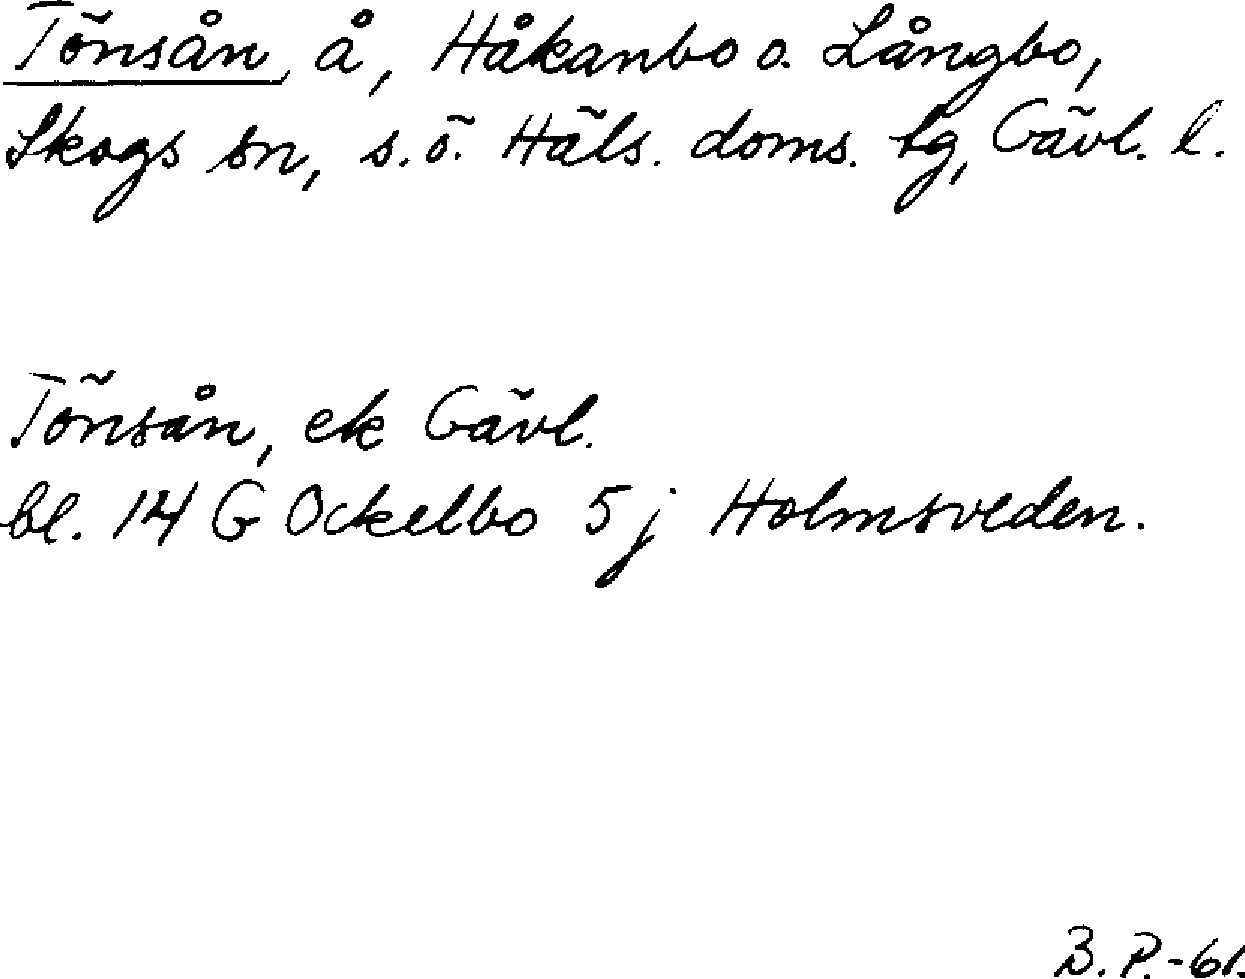 Tönsån, å, Håkanbo o. Långbo,
Skogs sn, s.ö. Häls. doms. tg, Gävl. l.
Tönsån, ek Gävl.
bl. 14 G Ockelbo 5 j Holmsveden.
B. P.-61.